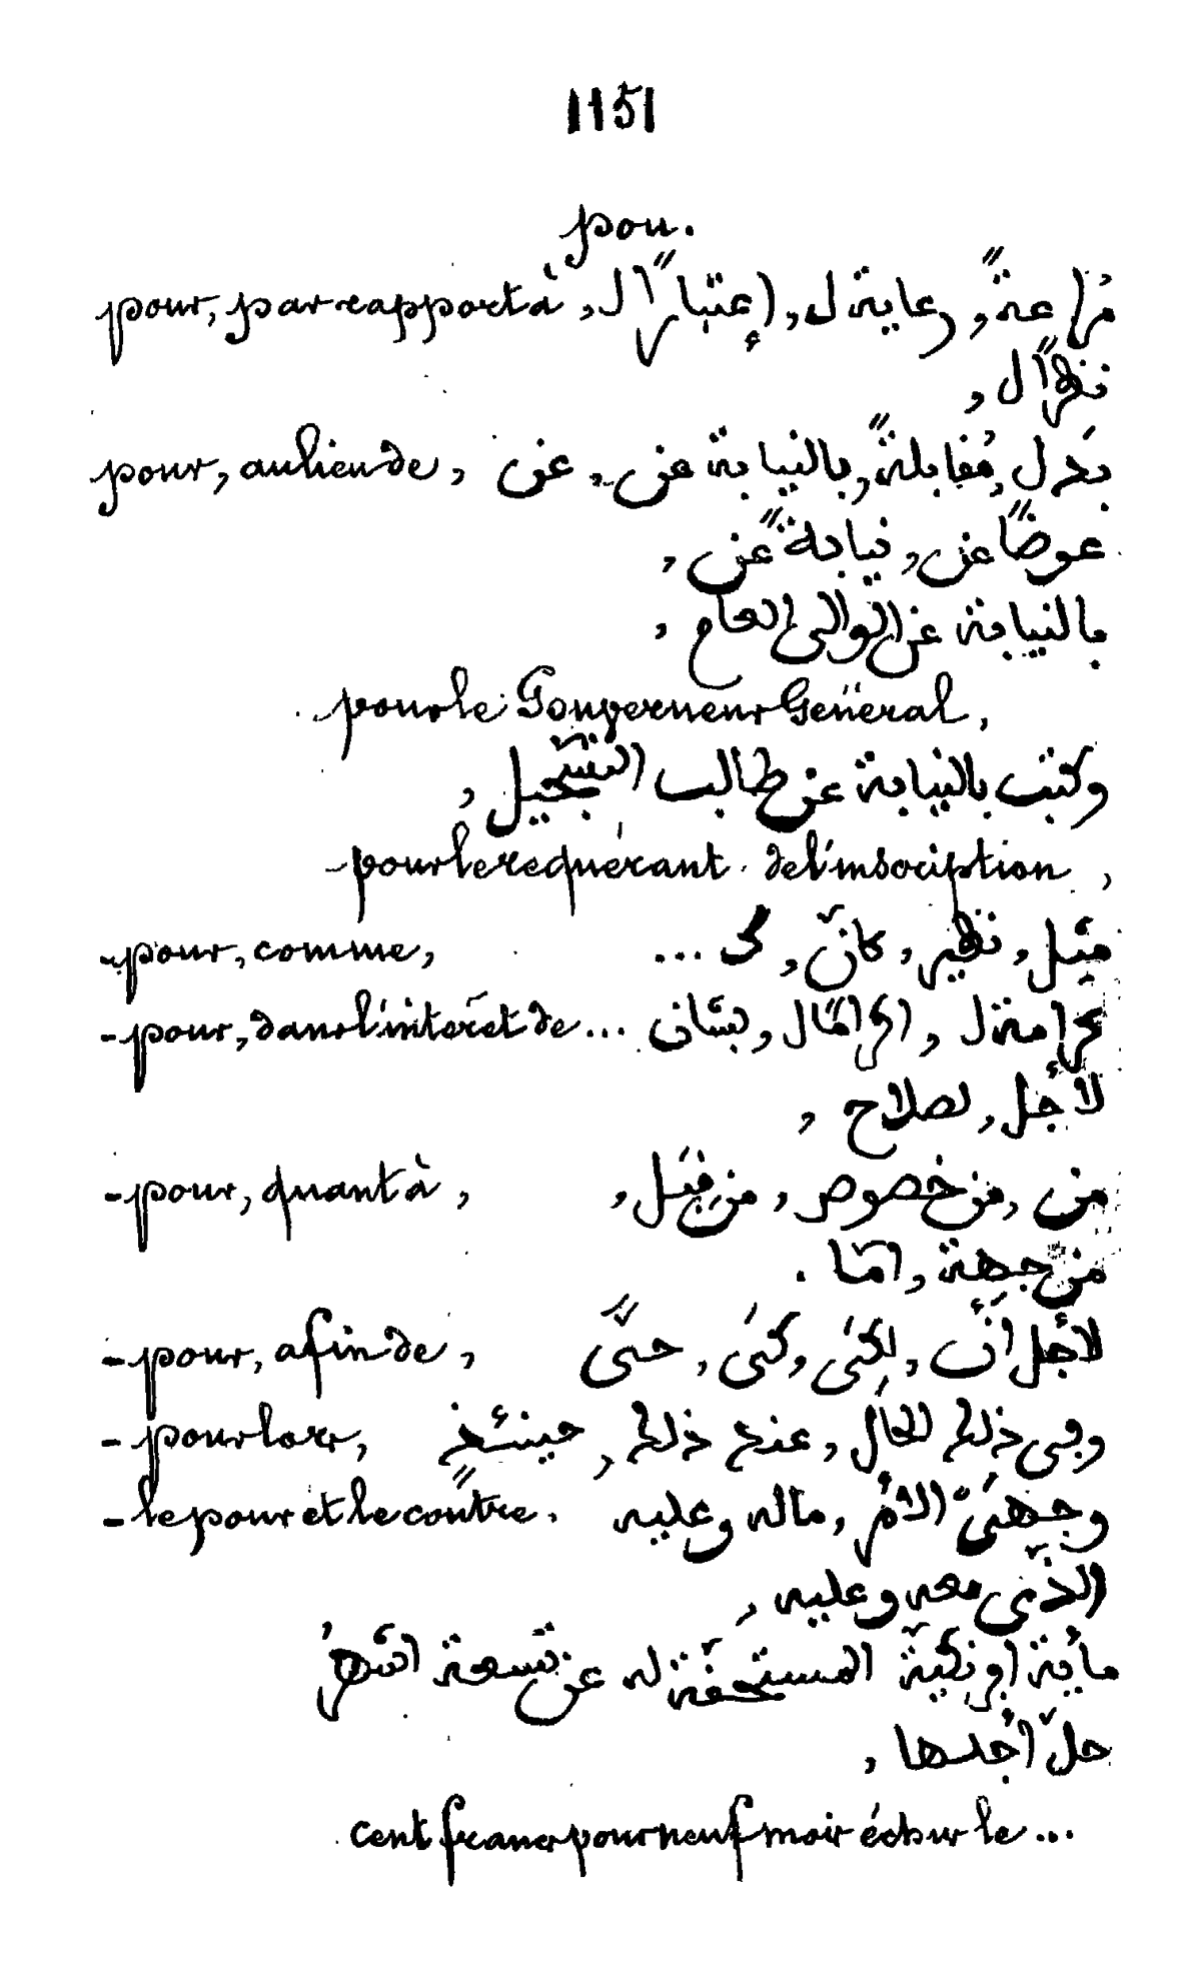 1151
pou.
pour, par rapport à, إعتبارًا ل, رعاية ل, مُراعةً
نظرًا ل,
pour, au lieu de, عن, بالنيابة عن, مُقابلةً, بدَل
عوضًا عن, نيابةً عن,
بالنيابة عن الوالى العام,
pour le Gouverneur Général,
وكتب بالنيابة عن طالب التسجيل,
- pour le requérant de l'inscription,
- pour, comme, مثل, نظير, كانّ, كـ ...
- pour, dans l'intérêt de... بشان
لأجل, لصلاح,
- pour, quant à, من, من خصوص, من قِبَل,
من جهة, امّا.
- pour, afin de, لأجل أنّ, لِكَىْ, كَىْ, حتّى
- pour lors, وفى ذلك الحال, عند ذلك, حينئذٍ
- le pour et le contre. وجهَىْ الأمْر, ماله وعليه
الذى معه وعليه,
مأية افرنكية المستحقّة له عن تسعة اشهُر
حلّ أجلها,
cent francs pour neuf mois échus le...